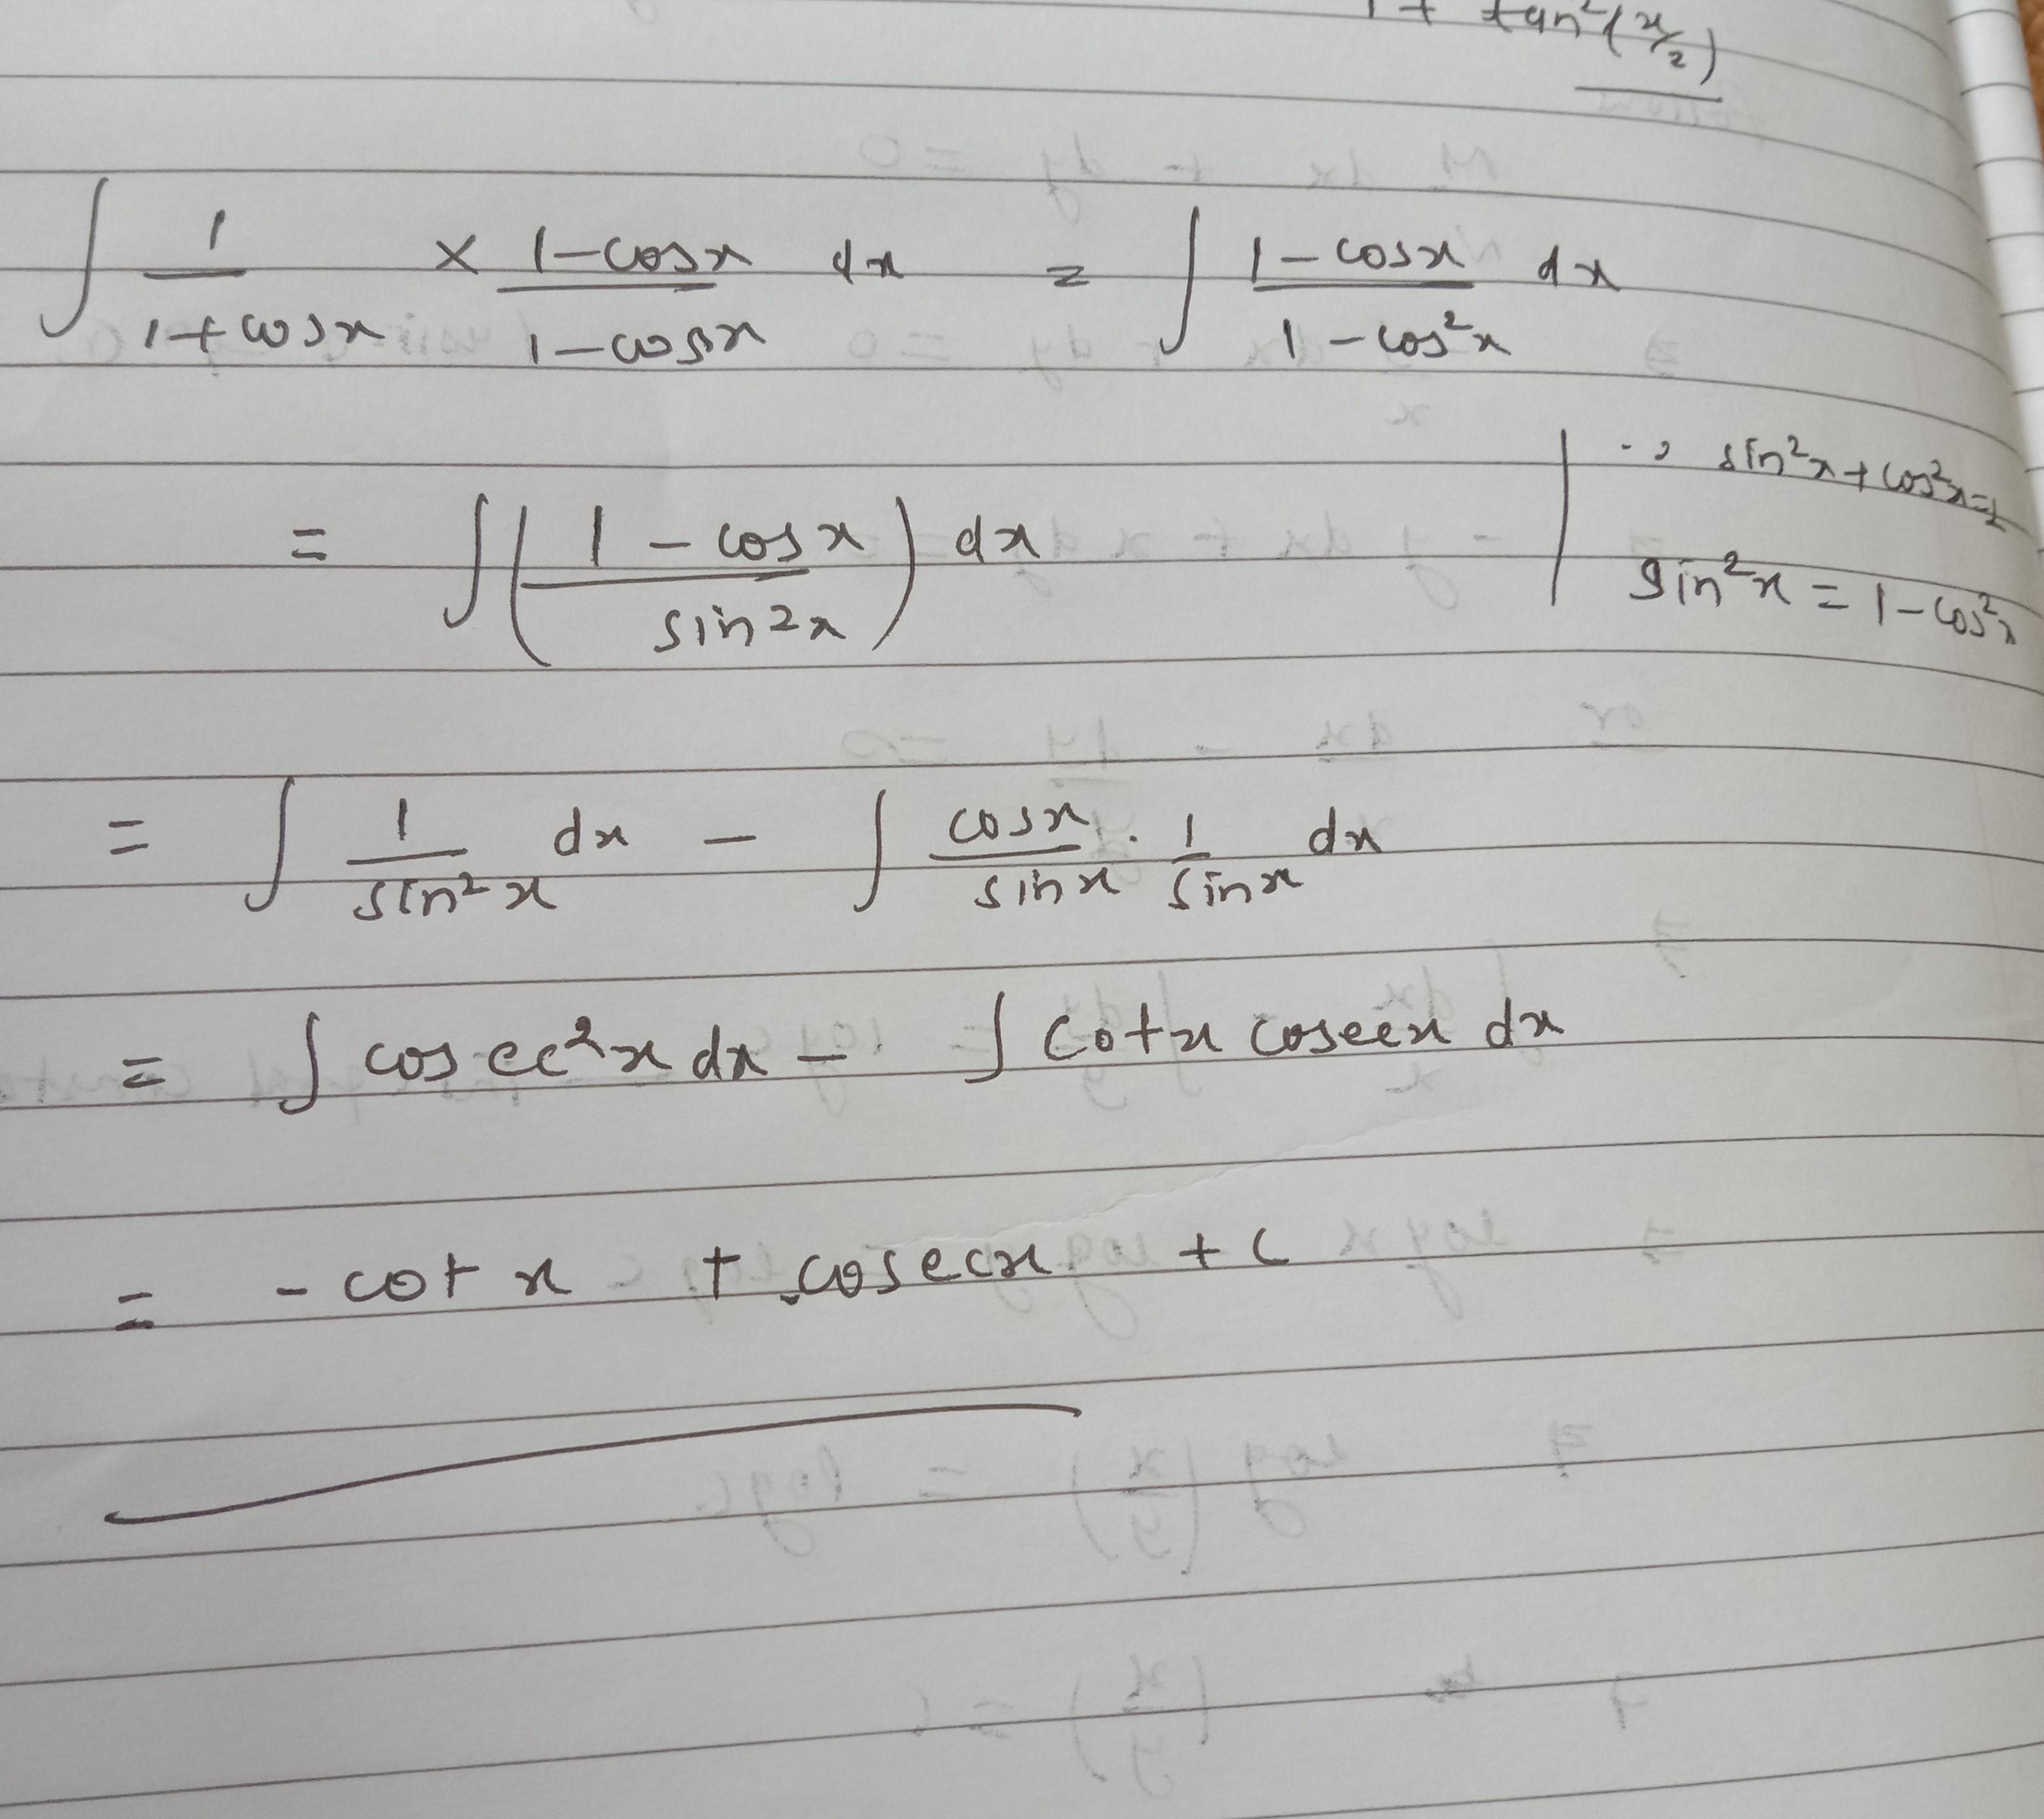 1 + tan²(x/2)
∫ 1/(1+cosx) × (1-cosx)/(1-cosx) dx = ∫ (1-cosx)/(1-cos²x) dx
∵ sin²x + cos²x = 1
= ∫ ((1 - cosx)/(sin2x)) dx
sin²x = 1 - cos²x
= ∫ 1/(sin²x) dx - ∫ (cosx)/(sinx) · 1/(sinx) dx
= ∫ cosec²x dx - ∫ cotx cosecx dx
= - cot x + cosecx + c